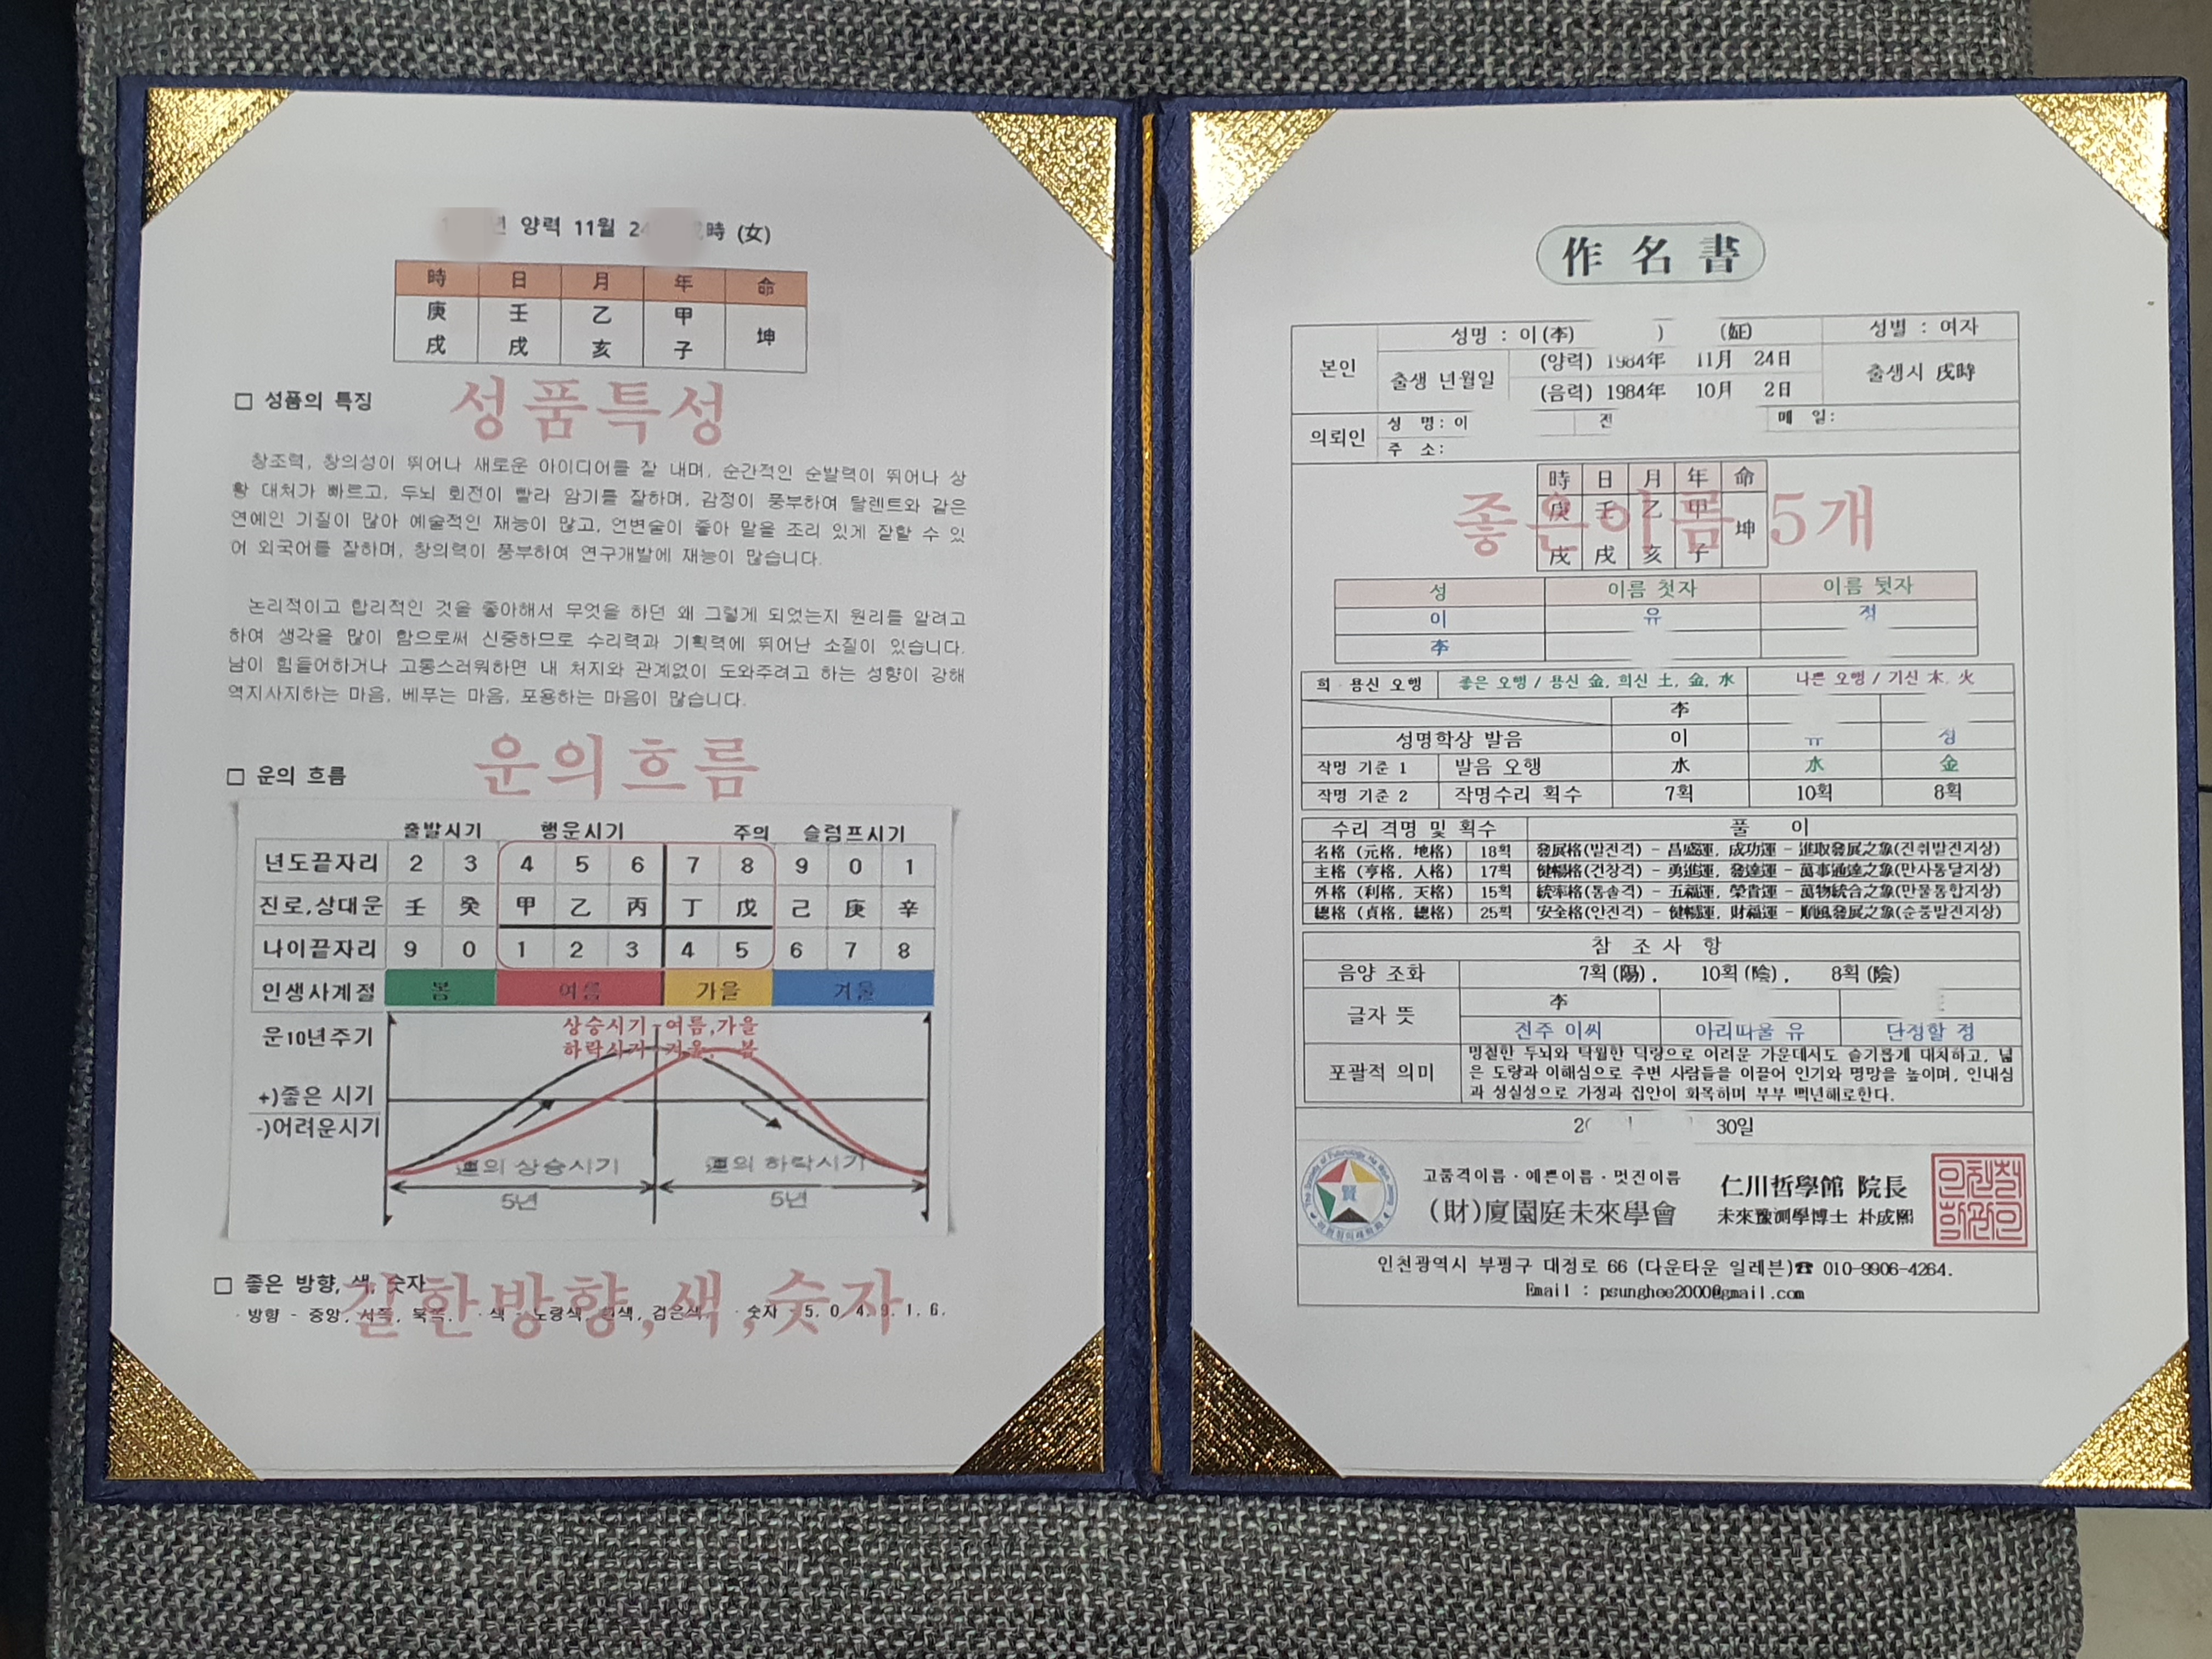 년 양력 11월 2 時 (女)
時 日 月 年 命
庚 壬 乙 甲 坤
戌 戌 亥 子
□ 성품의 특징
성품특성
창조력, 창의성이 뛰어나 새로운 아이디어를 잘 내며, 순간적인 순발력이 뛰어나 상
황 대처가 빠르고, 두뇌 회전이 빨라 암기를 잘하며, 감정이 풍부하여 탈렌트와 같은
연예인 기질이 많아 예술적인 재능이 많고, 언변술이 좋아 말을 조리 있게 잘할 수 있
어 외국어를 잘하며, 창의력이 풍부하여 연구개발에 재능이 많습니다.
논리적이고 합리적인 것을 좋아해서 무엇을 하던 왜 그렇게 되었는지 원리를 알려고
하여 생각을 많이 함으로써 신중하므로 수리력과 기획력에 뛰어난 소질이 있습니다.
남이 힘들어하거나 고통스러워하면 내 처지와 관계없이 도와주려고 하는 성향이 강해
역지사지하는 마음, 베푸는 마음, 포용하는 마음이 많습니다.
운의흐름
□ 운의 흐름
출발시기 행운시기 주의 슬럼프시기
년도끝자리 2 3 4 5 6 7 8 9 0 1
진로,상대운 壬 癸 甲 乙 丙 丁 戊 己 庚 辛
나이끝자리 9 0 1 2 3 4 5 6 7 8
인생사계절 봄 여름 가을 겨울
운10년주기
상승시기-여름,가을
하락시기-겨울, 봄
+)좋은 시기
-)어려운시기
運의 상승시기 運의 하락시기
5년 5년
□ 좋은 방향, 색, 숫자
길한방향,색,숫자
· 방향 - 중앙, 서쪽, 북쪽. · 색 - 노랑색, 흰색, 검은색. · 숫자 - 5. 0. 4. 9. 1. 6.
作名書
본인 성명 : 이(李) ) (姃) 성별 : 여자
출생 년월일 (양력) 1984年 11月 24日 출생시 戌時
(음력) 1984年 10月 2日
의뢰인 성 명: 이 전 메 일:
주 소:
時 日 月 年 命
庚 壬 乙 甲 坤
戌 戌 亥 子
좋은이름 5개
성 이름 첫자 이름 뒷자
이 유 정
李
희·용신 오행 좋은 오행 / 용신 金, 희신 土, 金, 水 나쁜 오행 / 기신 木, 火
李
성명학상 발음 이 유 정
작명 기준 1 발음 오행 水 水 金
작명 기준 2 작명수리 획수 7획 10획 8획
수리 격명 및 획수 풀 이
名格 (元格, 地格) 18획 發展格(발전격) - 昌盛運, 成功運 - 進取發展之象(진취발전지상)
主格 (亨格, 人格) 17획 健暢格(건창격) - 勇進運, 發達運 - 萬事通達之象(만사통달지상)
外格 (利格, 天格) 15획 統率格(통솔격) - 五福運, 榮貴運 - 萬物統合之象(만물통합지상)
總格 (貞格, 總格) 25획 安全格(안전격) - 健暢運, 財福運 - 順風發展之象(순풍발전지상)
참 조 사 항
음양 조화 7획(陽), 10획(陰), 8획(陰)
글자 뜻 李
전주 이씨 아리따울 유 단정할 정
포괄적 의미 명철한 두뇌와 탁월한 덕량으로 어려운 가운데서도 슬기롭게 대처하고, 넓
은 도량과 이해심으로 주변 사람들을 이끌어 인기와 명망을 높이며, 인내심
과 성실성으로 가정과 집안이 화목하며 부부 백년해로한다.
30일
고품격이름·예쁜이름·멋진이름
(財)廈園庭未來學會
仁川哲學館 院長
未來豫測學博士 朴成熙
인천철학관인
인천광역시 부평구 대정로 66 (다운타운 일레븐)☎ 010-9906-4264.
Email : psunghee2000@gmail.com